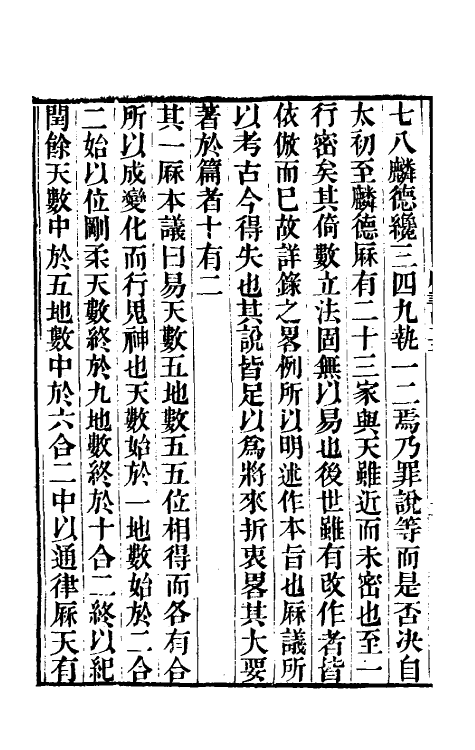 七八麟德纔三四九執一二焉乃罪說等而是否決自
太初至麟德厤有二十三家與天雖近而未密也至一
行密矣其倚數立法固無以易也後世雖有改作者皆
依倣而已故詳錄之畧例所以明述作本旨也厤議所
以考古今得失也其說皆足以爲將來折衷畧其大要
著於篇者十有二
其一厤本議曰易天數五地數五五位相得而各有合
所以成變化而行鬼神也天數始於一地數始於二合
二始以位剛柔天數終於九地數終於十合二終以紀
閏餘天數中於五地數中於六合二中以通律厤天有